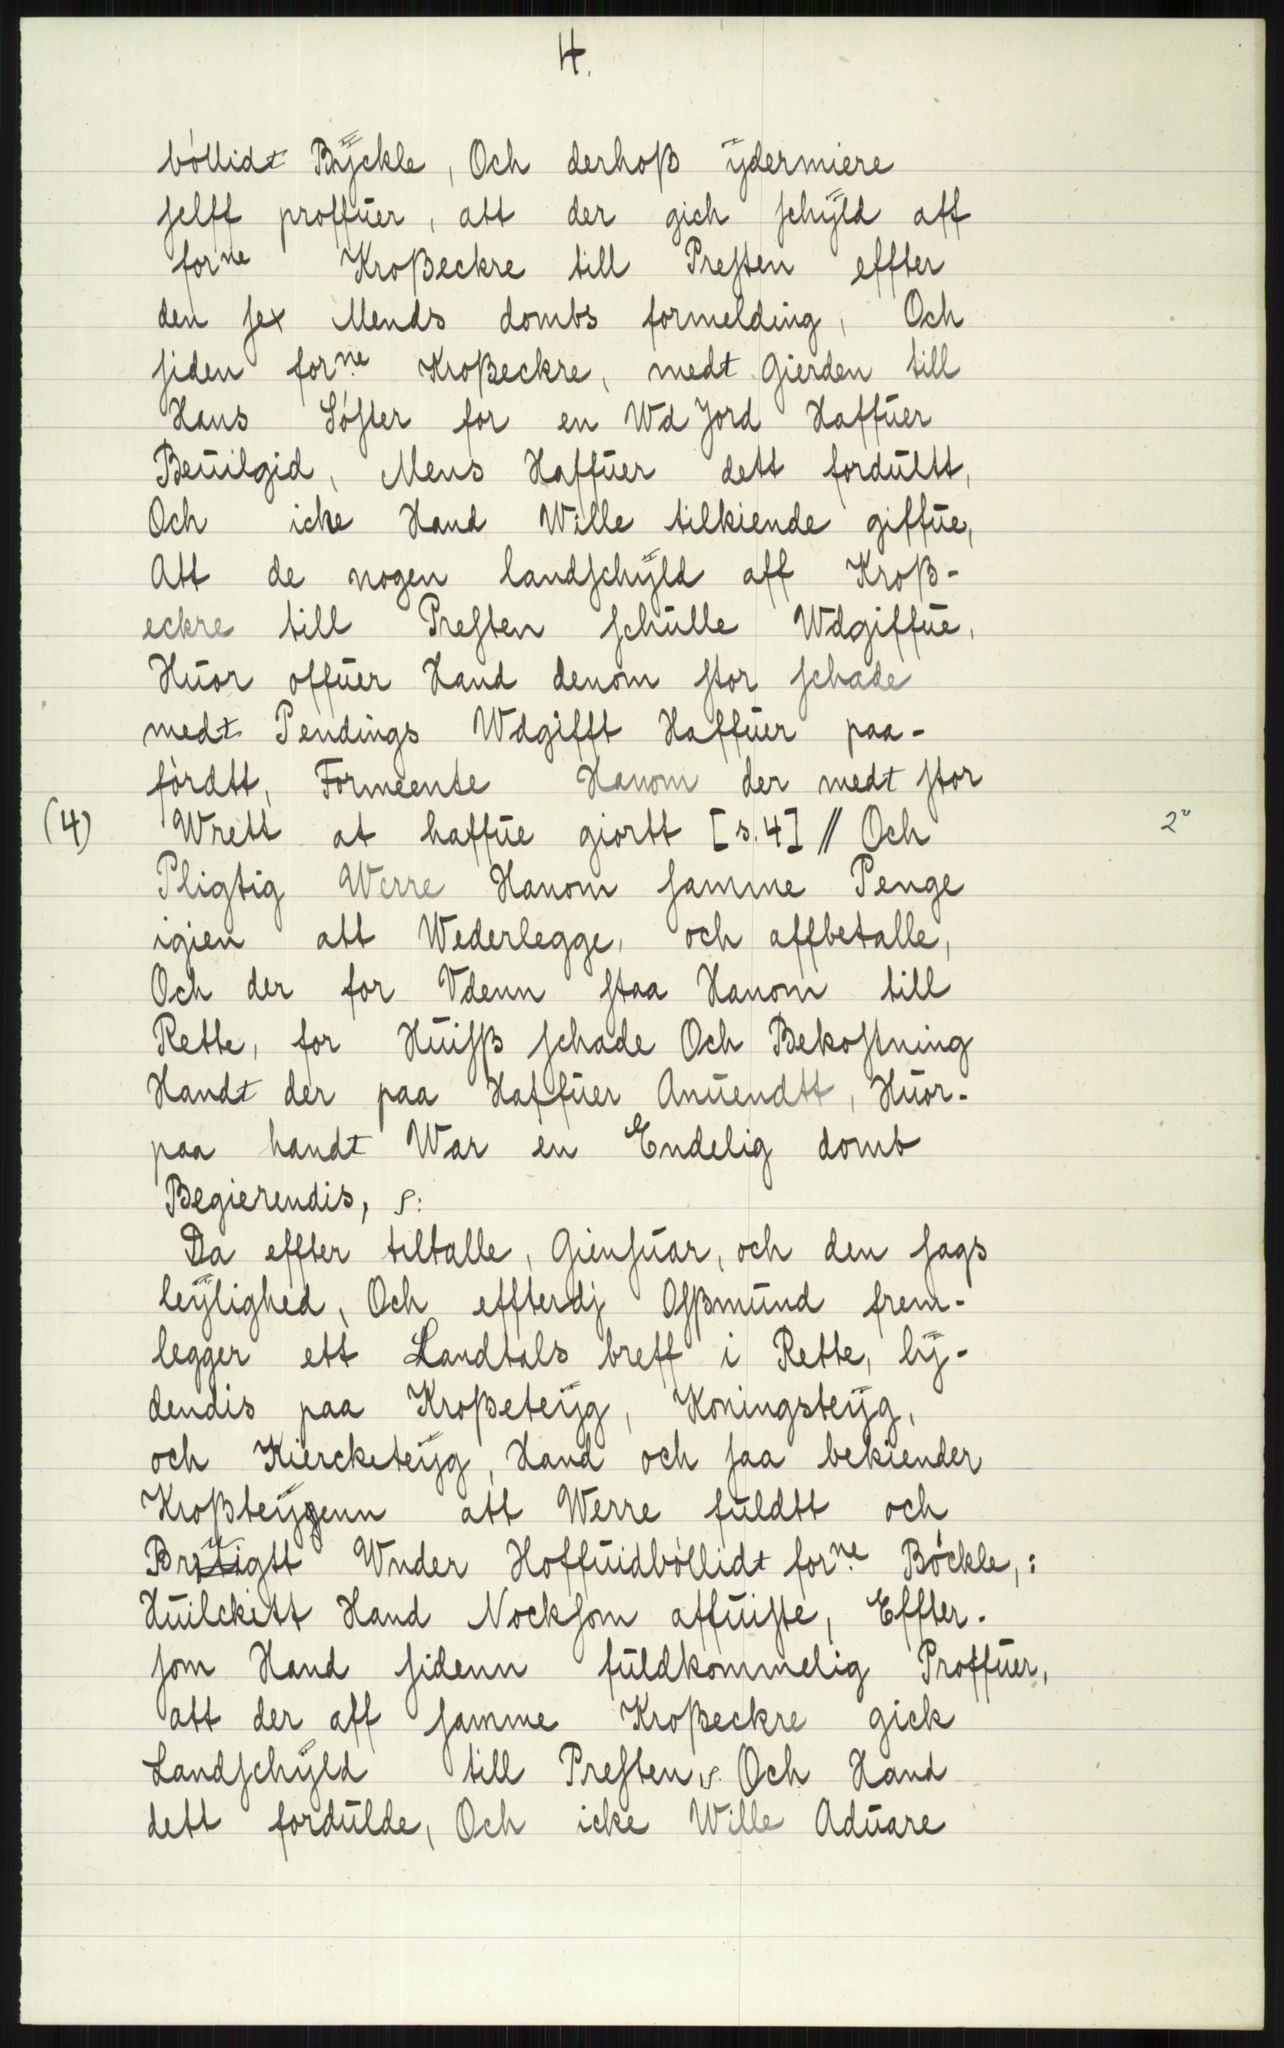 4.
böllidt Bÿckle, Och derhoß ÿdermiere
selft proffuer, att der gich schÿld aff
forne Kroßeckre till Presten effter
den sex Mends dombs formelding, Och
siden forne Kroßeckre, medt Gierden till
Hans Söster for en Wd Jord Haffuer
Beuilgid, Mens Haffuer dett fordultt,
Och icke Hand Wille tilkiende giffue,
Att de nogen landschÿld aff Kroß-
eckre till Presten schulle Wdgiffue,
Huor offuer Hand denom stor schade
medt Pendings Wdgifft Haffuer paa-
fördtt, Formeente Hanom der medt stor
(4) Wrett at haffue giortt [s. 4] // Och 2°
Pligtig Werre Hanom samme Penge
igien att Wederlegge, och affbetalle,
Och der for Vdenn staa Hanom till
Rette, for Huisß schade Och Bekostning
Handt der paa Haffuer Anuendtt, Huor-
paa handt War en Endelig domb
Begierendis, s:
Da effter tiltalle, Giensuar, och den sags
leÿlighed, Och effterdj Osßmund frem-
legger ett Landtals breff i Rette, lÿ-
dendis paa Kroßeteÿg, Koningsteÿg,
och Kiercketeÿg, Hand och saa bekiender
Kroßteÿgenn att Werre fuldtt och
Wnder Hoffuidböllidt forne Böckle,:
Huilckett Hand Nocksom affuiste, Effter-
som Hand sidenn fuldkommelig Proffuer,
att der aff samme Kroßeckre gick
Landschÿld till Presten, s. Och Hand
dett fordulde, Och icke Wille Aduare